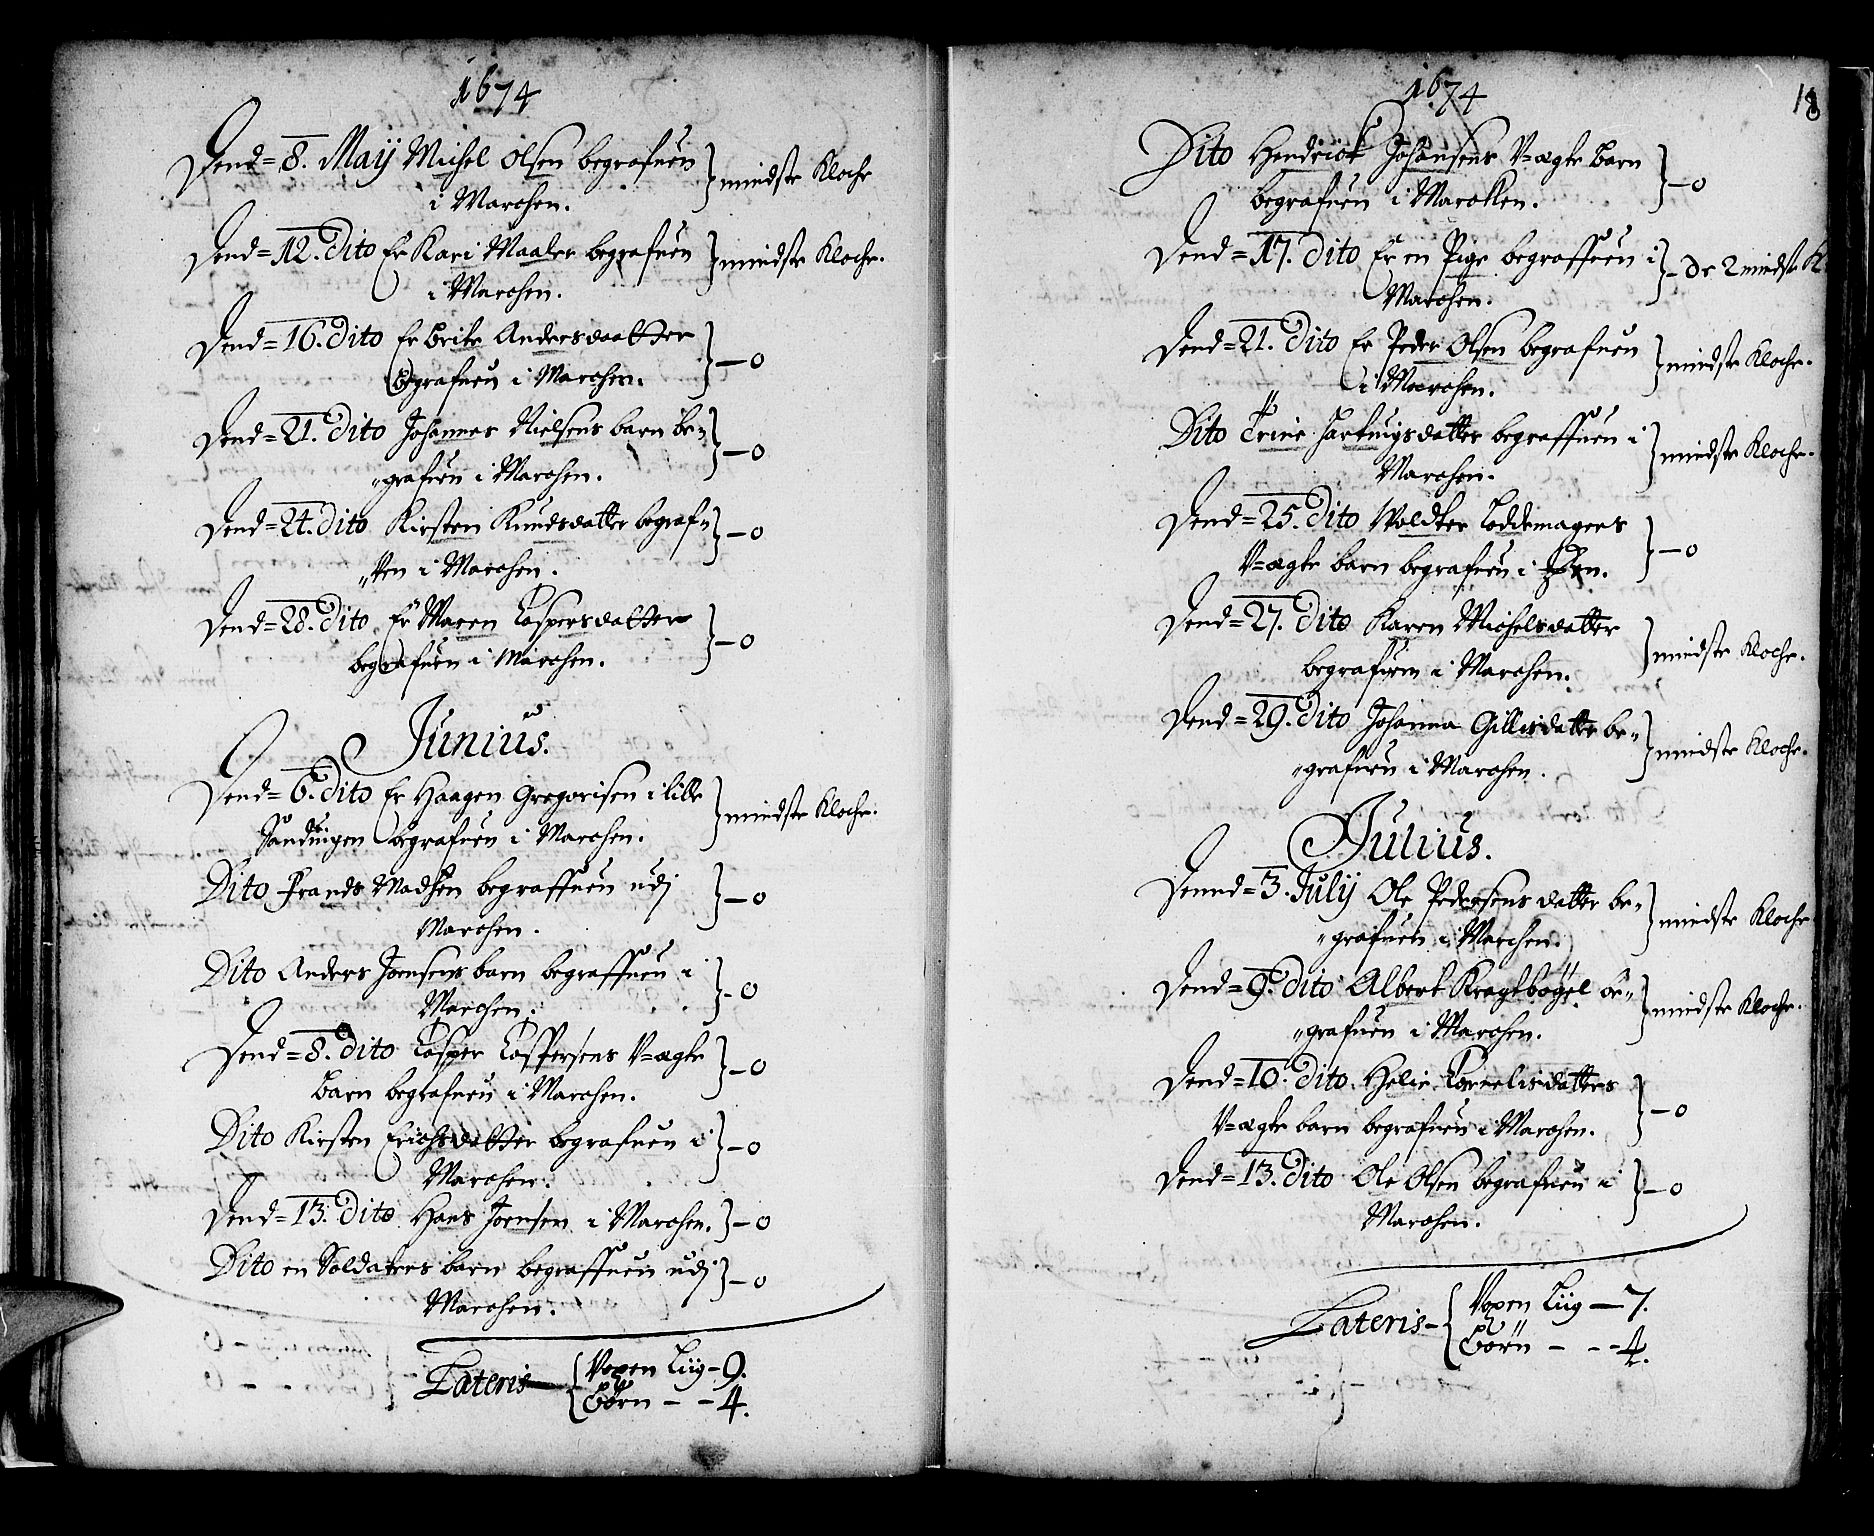 1674
Dend= 8. Maÿ Michel Olsen begrafuen
i Marchen. } mindste Kloche
Dend= 12. Dito Er Kari Maaler begrafuen
i Marchen. } mindste Kloche.
Dend= 16. Dito Er Brite Andersdaatter
begrafuen i Marchen. } — 0
Dend= 21. Dito Johannes Nielsens barn be„
„grafuen i Marchen. } — 0
Dend= 24. Dito Kirsten Knudsdatter begraf„
„uen i Marchen. } — 0
Dend= 28. Dito Er Maren Caspersdatter
begrafuen i Marchen. } — 0
Junius.
Dend= 6. Dito Er Haagen Gregorisen i lille
Sanduigen begrafuen i Marchen. } mindste Kloche.
Dito Frands Madsen begraffuen udj
Marchen. } — 0
Dito Anders Joensens barn begraffuen i
Marchen. } — 0
Dend= 8. Dito Casper Caspersens V=ægte
Barn begrafuen i Marchen. } — 0
Dito Kirsten Erichsdatter begrafuen i
Marchen. } — 0
Dend= 13. Dito Hans Joensen i Marchen. } — 0
Dito en Soldaters barn begraffuen udj
Marchen. } — 0
Lateris — { Voxen Liig — 9.
Börn — — 4.
1674
18
Dito Hendrick Johansens V=ægte Barn
begrafuen i Marchen. } — 0
Dend= 17. Dito Er en Pige begraffuen i
Marchen. } — De 2 mindste K.
Dend= 21. Dito Er Peder Olsen begrafuen
i Marchen. } mindste Kloche.
Dito Trine Hartuigsdatter begraffuen i
Marchen. } mindste Kloche.
Dend= 25. Dito Woldter Loddemagers
V=ægte barn begrafuen i } — 0
Dend= 27. Dito Karen Michelsdatter
begrafuen i Marchen. } mindste Kloche.
Dend= 29. Dito Johanna Gillisdatter be„
„grafuen i Marchen. } mindste Kloche.
Julius.
Dennd= 3. Julÿ Ole Pedersens datter be„
„grafuen i Marchen. } mindste Kloche
Dend= 9. Dito Albert Kragtbögel be„
„grafuen i Marchen. } mindste Kloche.
Dend= 10. Dito Helie Cornelisdatters
V=ægte barn begrafuen i Marchen. } — 0
Dend= 13. Dito Ole Olsen begrafuen i
Marchen. } — 0
Lateris — { Voxen Liig — 7.
Börn — — 4.